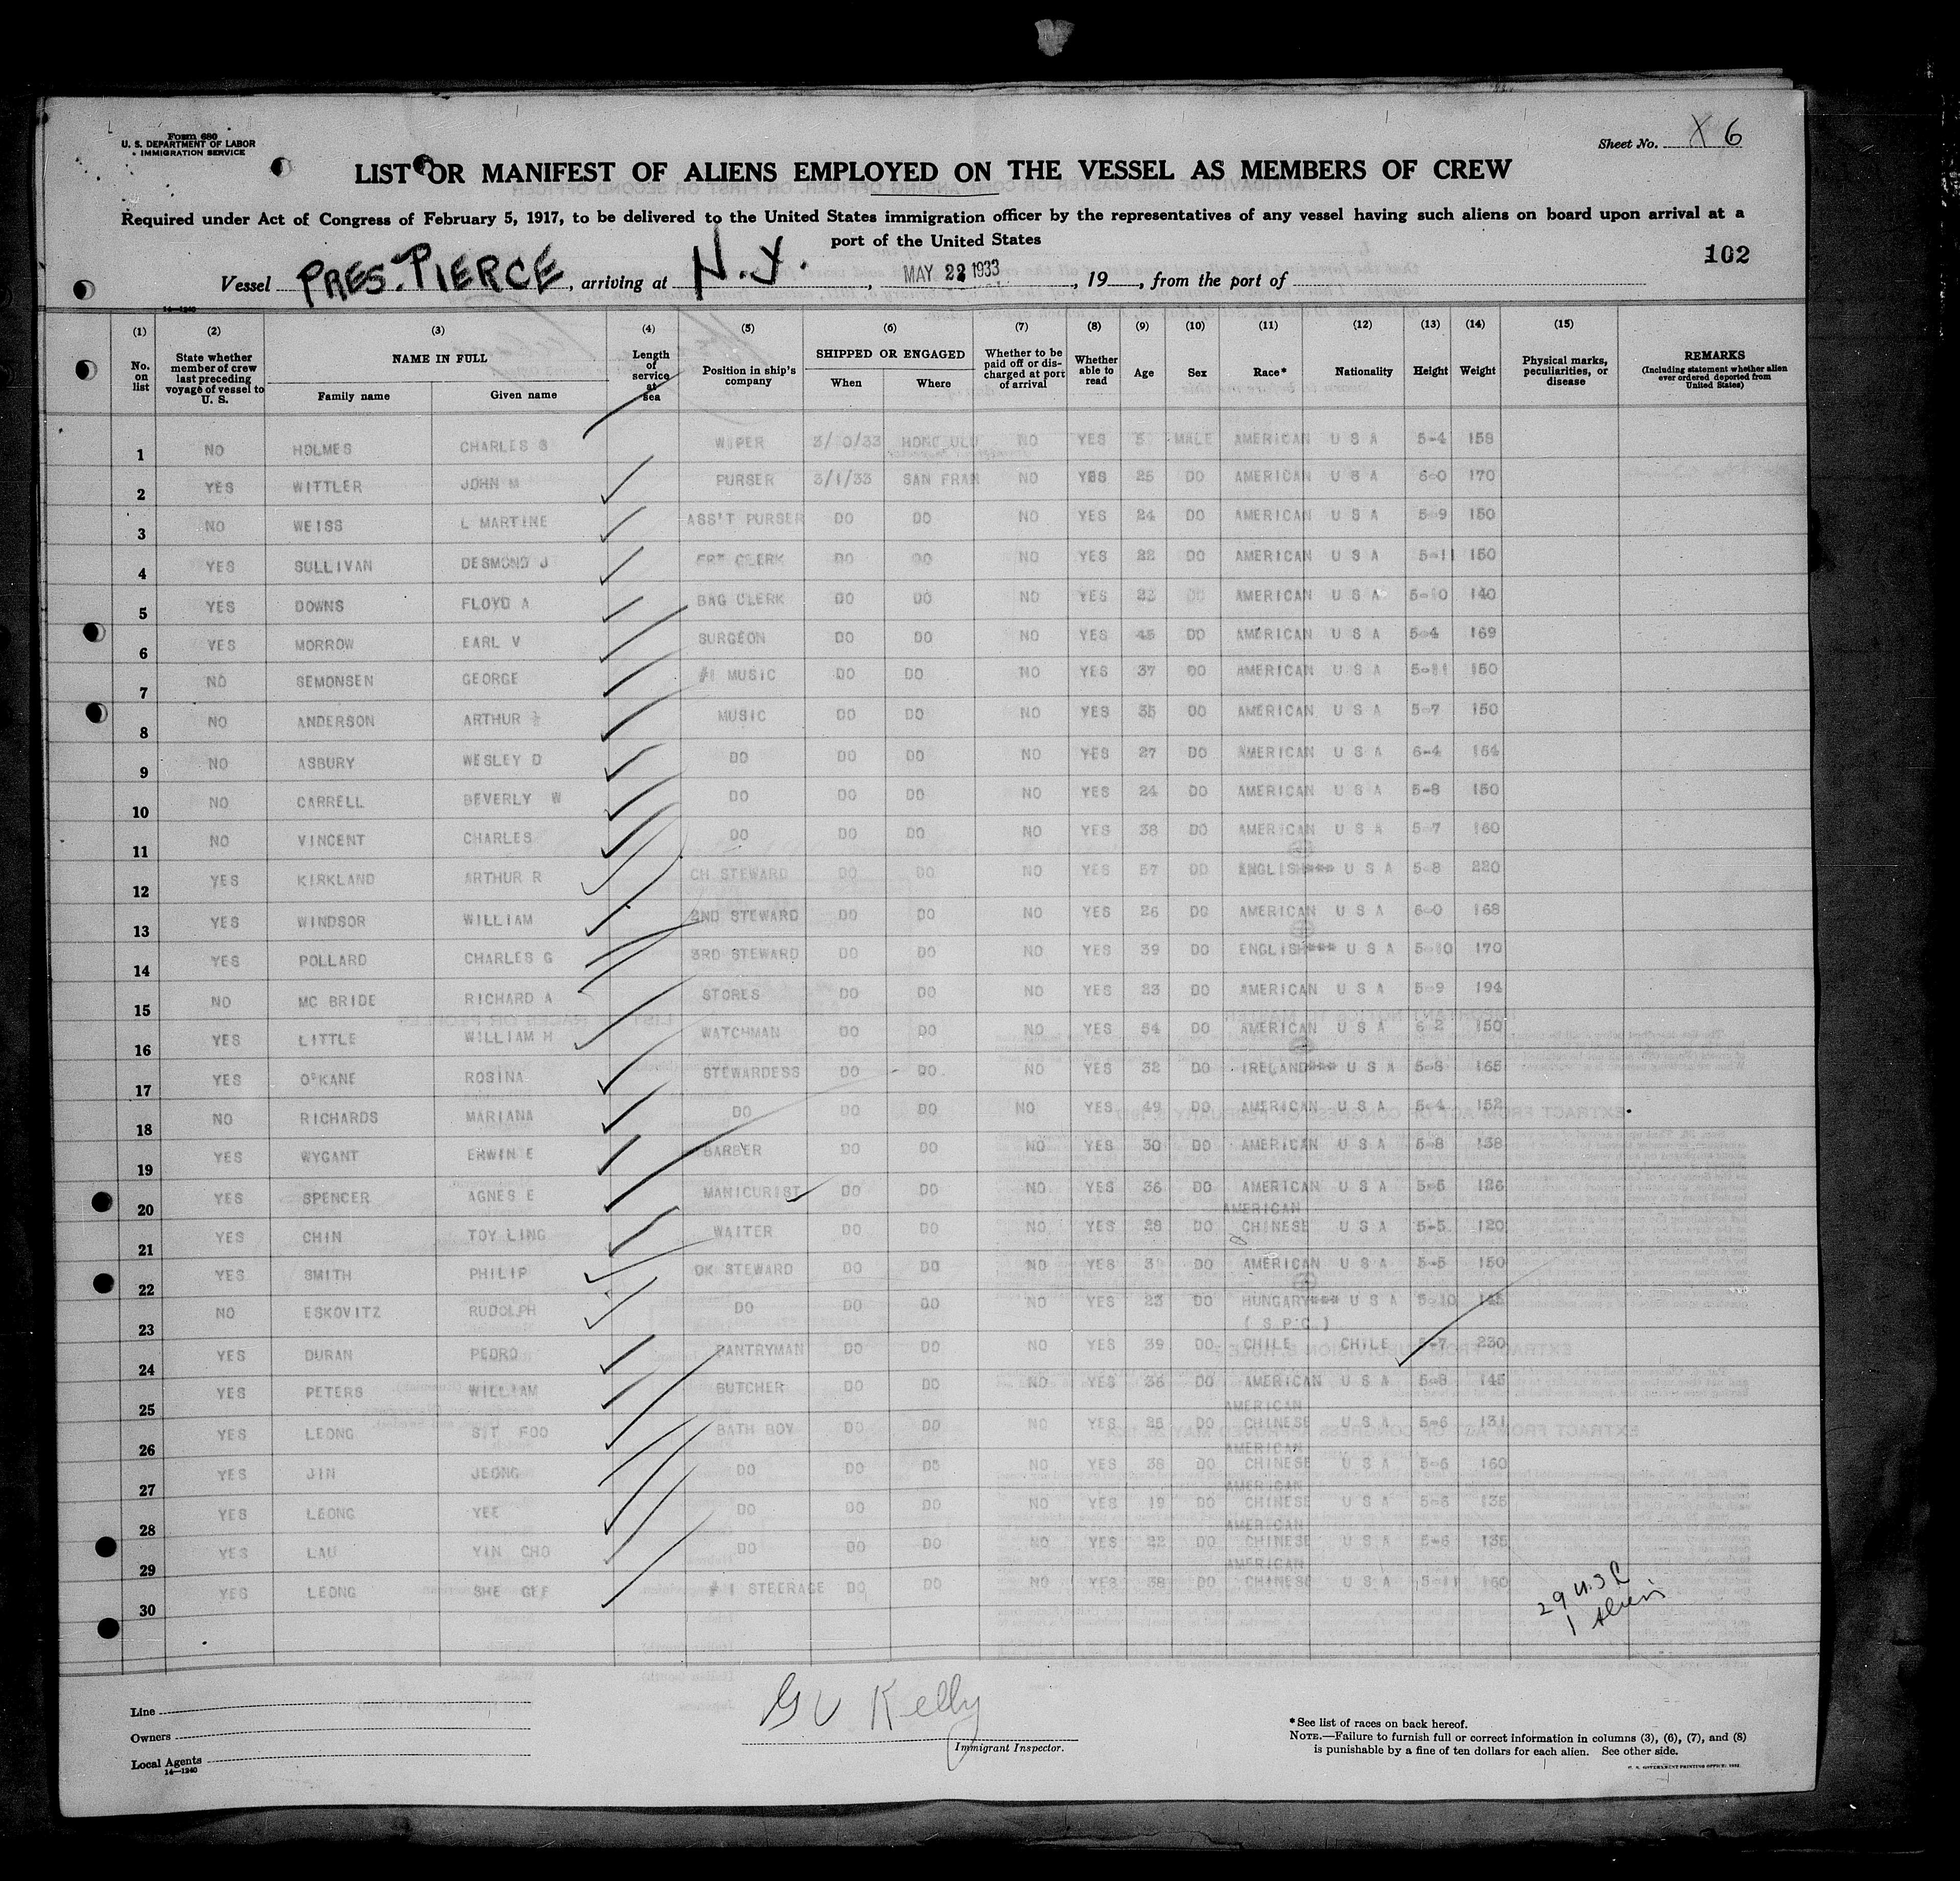 Form 680
U. S. DEPARTMENT OF LABOR
IMMIGRATION SERVICE
Sheet No. X 6
LIST OR MANIFEST OF ALIENS EMPLOYED ON THE VESSEL AS MEMBERS OF CREW
Required under Act of Congress of February 5, 1917, to be delivered to the United States immigration officer by the representatives of any vessel having such aliens on board upon arrival at a
port of the United States
102
Vessel PRES. PIERCE, arriving at N.Y., MAY 22 1933, 19, from the port of
14—1240
(1) (2) (3) (4) (5) (6) (7) (8) (9) (10) (11) (12) (13) (14) (15)
No. on list State whether member of crew last preceding voyage of vessel to U. S. NAME IN FULL Family name Given name Length of service at sea Position in ship's company SHIPPED OR ENGAGED When Where Whether to be paid off or discharged at port of arrival Whether able to read Age Sex Race* Nationality Height Weight Physical marks, peculiarities, or disease REMARKS (Including statement whether alien ever ordered deported from United States)
1 NO HOLMES CHARLES WIPER HONOLULU NO YES MALE AMERICAN U S A 5-4 158
2 YES WITTLER JOHN M PURSER 3/1/33 SAN FRAN NO YES 25 DO AMERICAN U S A 6-0 170
3 NO WEISS L MARTINE ASS'T PURSER DO DO NO YES 24 DO AMERICAN U S A 5-9 150
4 YES SULLIVAN DESMOND J FRT CLERK DO DO NO YES 22 DO AMERICAN U S A 5-11 150
5 YES DOWNS FLOYD A BAG CLERK DO DO NO YES 23 DO AMERICAN U S A 5-10 140
6 YES MORROW EARL V SURGEON DO DO NO YES 45 DO AMERICAN U S A 5-4 169
7 NO SEMONSEN GEORGE #1 MUSIC DO DO NO YES 37 DO AMERICAN U S A 5-11 150
8 NO ANDERSON ARTHUR MUSIC DO DO NO YES 35 DO AMERICAN U S A 5-7 150
9 NO ASBURY WESLEY D DO DO DO NO YES 27 DO AMERICAN U S A 6-4 164
10 NO CARRELL BEVERLY W DO DO DO NO YES 24 DO AMERICAN U S A 5-8 150
11 NO VINCENT CHARLES DO DO DO NO YES 38 DO AMERICAN U S A 5-7 160
12 YES KIRKLAND ARTHUR R CH STEWARD DO DO NO YES 57 DO ENGLISH U S A 5-8 220
13 YES WINDSOR WILLIAM 2ND STEWARD DO DO NO YES 26 DO AMERICAN U S A 6-0 168
14 YES POLLARD CHARLES G 3RD STEWARD DO DO NO YES 39 DO ENGLISH U S A 5-10 170
15 NO MC BRIDE RICHARD A STORES DO DO NO YES 23 DO AMERICAN U S A 5-9 194
16 YES LITTLE WILLIAM H WATCHMAN DO DO NO YES 54 DO AMERICAN U S A 6-2 150
17 YES O'KANE ROSINA STEWARDESS DO DO NO YES 32 DO IRELAND U S A 5-8 165
18 NO RICHARDS MARIANA DO DO DO NO YES 49 DO AMERICAN U S A 5-4 152
19 YES WYGANT ERWIN E BARBER DO DO NO YES 30 DO AMERICAN U S A 5-8 138
20 YES SPENCER AGNES E MANICURIST DO DO NO YES 36 DO AMERICAN U S A 5-6 126
21 YES CHIN TOY LING WAITER DO DO NO YES 28 DO AMERICAN CHINESE U S A 5-5 120
22 YES SMITH PHILIP DK STEWARD DO DO NO YES DO AMERICAN U S A 5-5 150
23 NO ESKOVITZ RUDOLPH DO DO DO NO YES 23 DO HUNGARY U S A 5-10 145
24 YES DURAN PEDRO PANTRYMAN DO DO NO YES 39 DO ( S.P.C.) CHILE CHILE 5-7 230
25 YES PETERS WILLIAM BUTCHER DO DO NO YES 36 DO AMERICAN U S A 5-8 145
26 YES LEONG SIT FOO BATH BOY DO DO NO YES 26 DO AMERICAN CHINESE U S A 5-6 131
27 YES JIN JEONG DO DO DO NO YES 38 DO AMERICAN CHINESE U S A 5-6 160
28 YES LEONG YEE DO DO DO NO YES 19 DO AMERICAN CHINESE U S A 5-6 135
29 YES LAU YIN CHO DO DO DO NO YES 22 DO AMERICAN CHINESE U S A 5-6 135
30 YES LEONG SHE GEE # 1 STEERAGE DO DO NO YES 38 DO AMERICAN CHINESE U S A 5-11 160
29 U.S C
1 Alien
Line
Owners
Local Agents
14—1240
G V Kelly
Immigrant Inspector.
*See list of races on back hereof.
NOTE.—Failure to furnish full or correct information in columns (3), (6), (7), and (8)
is punishable by a fine of ten dollars for each alien. See other side.
U. S. GOVERNMENT PRINTING OFFICE: 1932